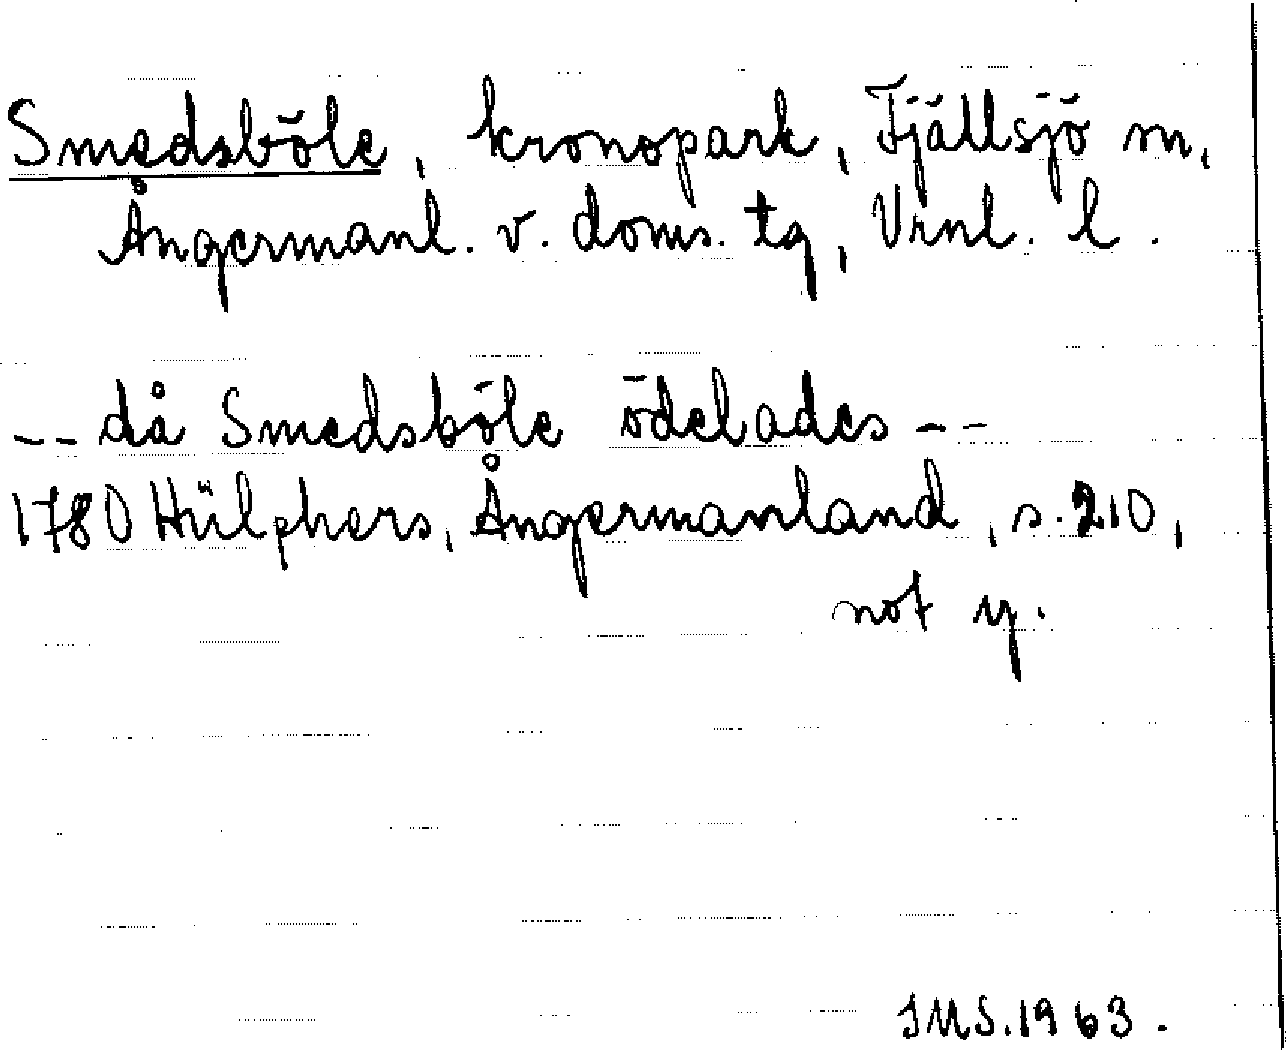 Smedsböle, kronopark, Fjällsjö sn,
Ångermanl. v. doms. tg, Vrnl. l.
-- då Smedsböle ödelades --
1780 Hülphers, Ångermanland, s. 210,
not y.
JMS. 1963.